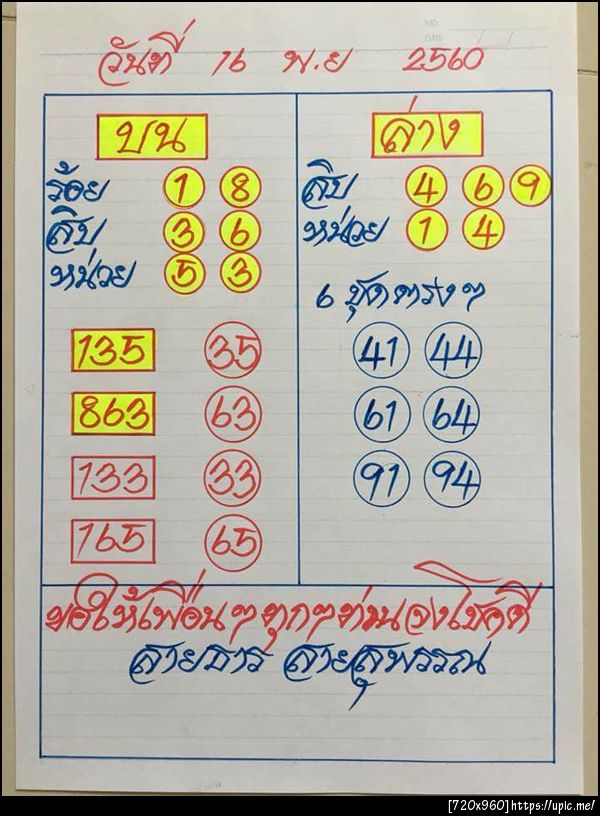 NO.
DATE / /
วันที่ 16 พ.ย 2560
บน
ร้อย 1 8
สิบ 3 6
หน่วย 5 3
135 35
863 63
133 33
165 65
ล่าง
สิบ 4 6 9
หน่วย 1 4
6 ชุดตรงๆ
41 44
61 64
91 94
ขอให้เพื่อนๆทุกๆท่านจงโชคดี
สายธาร สายสุพรรณ
[720x960]https://upic.me/